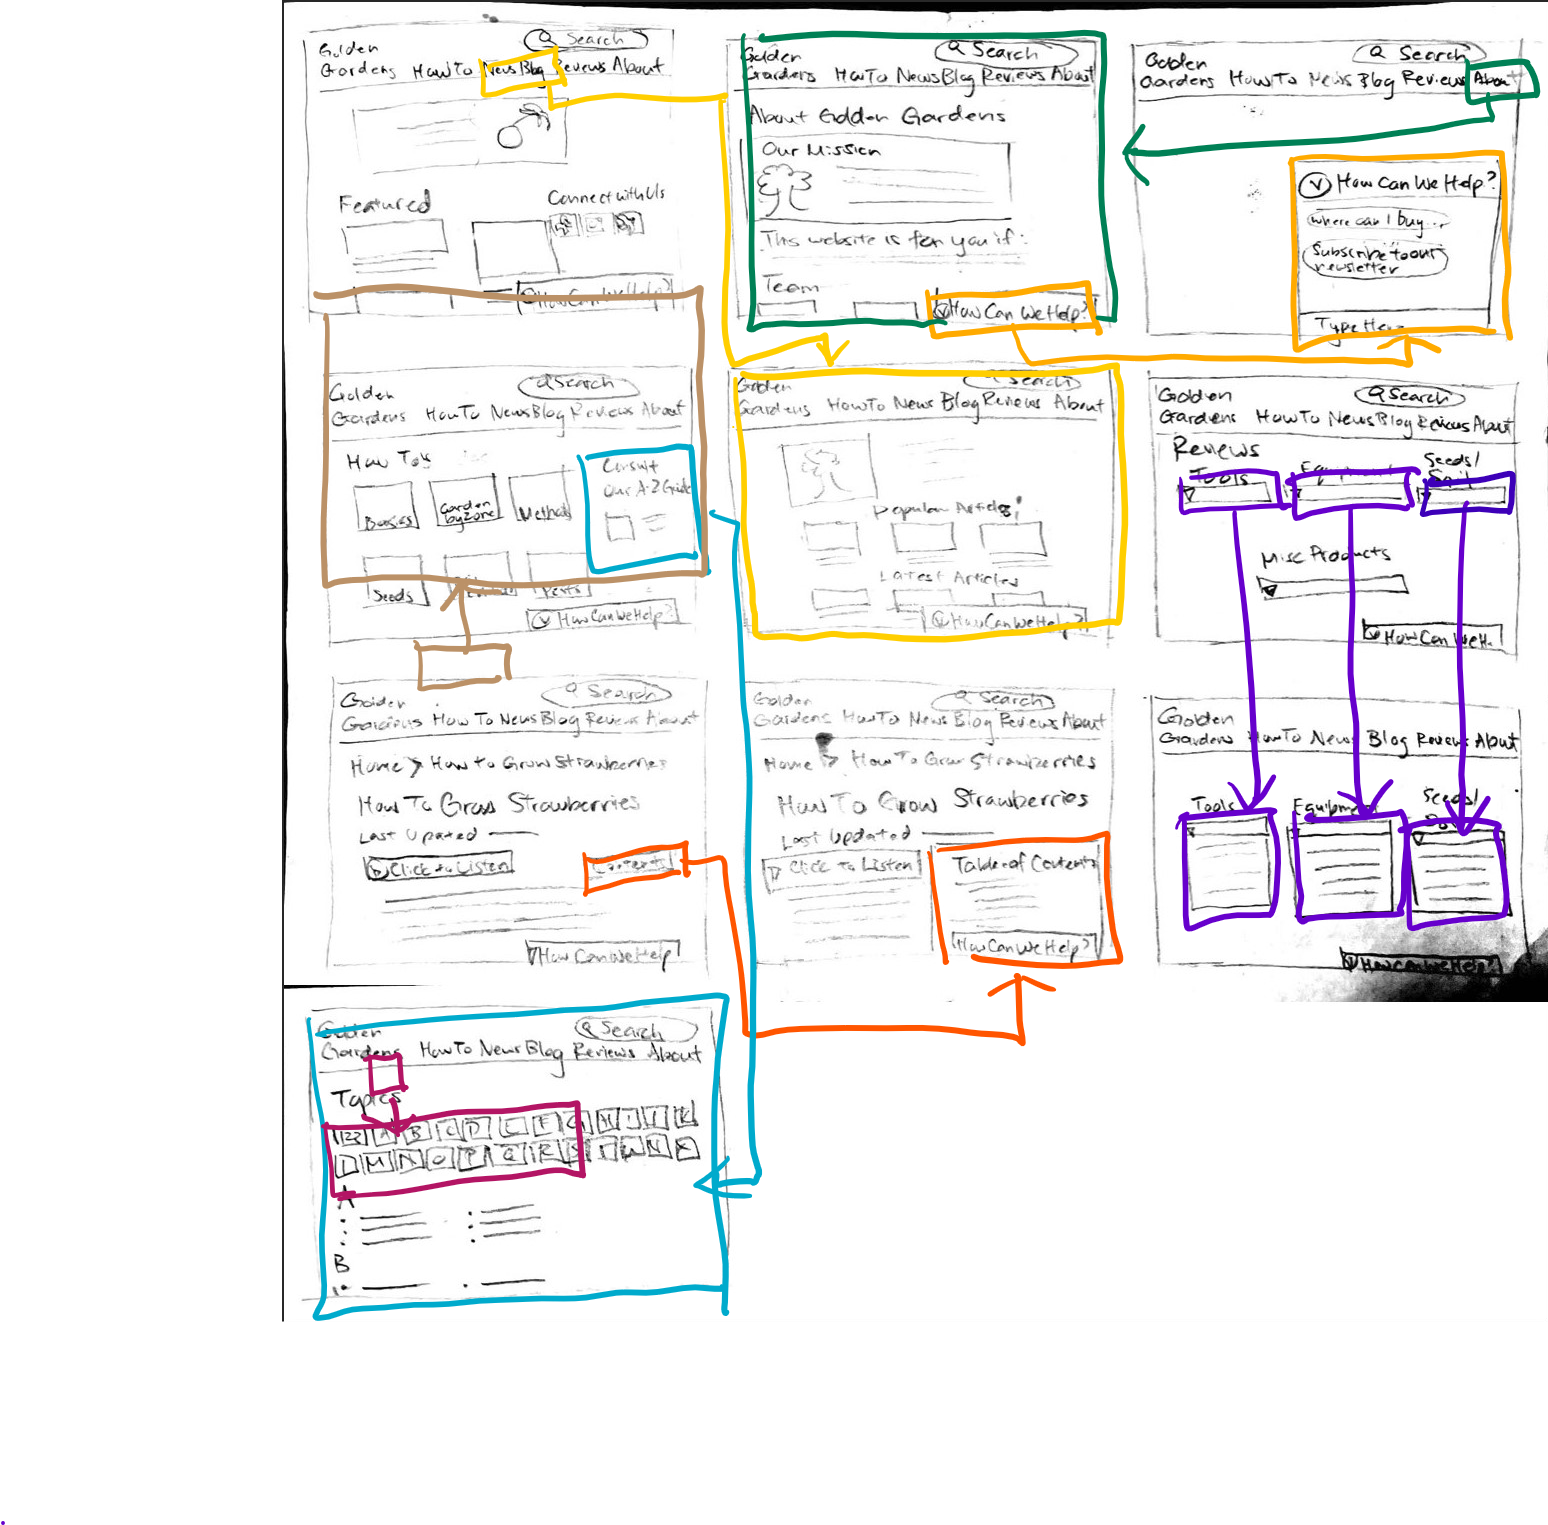 Search
Golden
Gardens HowTo News Blog Reviews About
Featured
Connect with Us
How Can We Help?
Search
Golden
Gardens HowTo News Blog Reviews About
About Golden Gardens
Our Mission
This website is for you if:
Team
How Can We Help?
Search
Golden
Gardens HowTo News Blog Reviews About
How Can We Help?
where can I buy...
Subscribe to our
newsletter
Type Here
Search
Golden
Gardens HowTo News Blog Reviews About
How Tos
Consult
Our A-Z Guide
Basics
Garden
by zone
Methods
Seeds
Pests
How Can We Help?
Search
Golden
Gardens HowTo News Blog Reviews About
Popular Articles
Latest Articles
How Can We Help?
Search
Golden
Gardens HowTo News Blog Reviews About
Reviews
Tools
Equipment
Seeds/
Soil
Misc Products
How Can We H..
Search
Golden
Gardens How To News Blog Reviews About
Home > How to Grow Strawberries
How To Grow Strawberries
Last Updated
Click to Listen
Contents
How Can We Help?
Search
Golden
Gardens HowTo News Blog Reviews About
Home > How To Grow Strawberries
How To Grow Strawberries
Last Updated
Click to Listen
Table of Contents
How Can We Help?
Golden
Gardens HowTo News Blog Reviews About
Tools
Equipment
Seeds/
How Can We Help?
Search
Golden
Gardens HowTo News Blog Reviews About
Topics
123 A B C D E F G H I J K
L M N O P Q R S
A
B